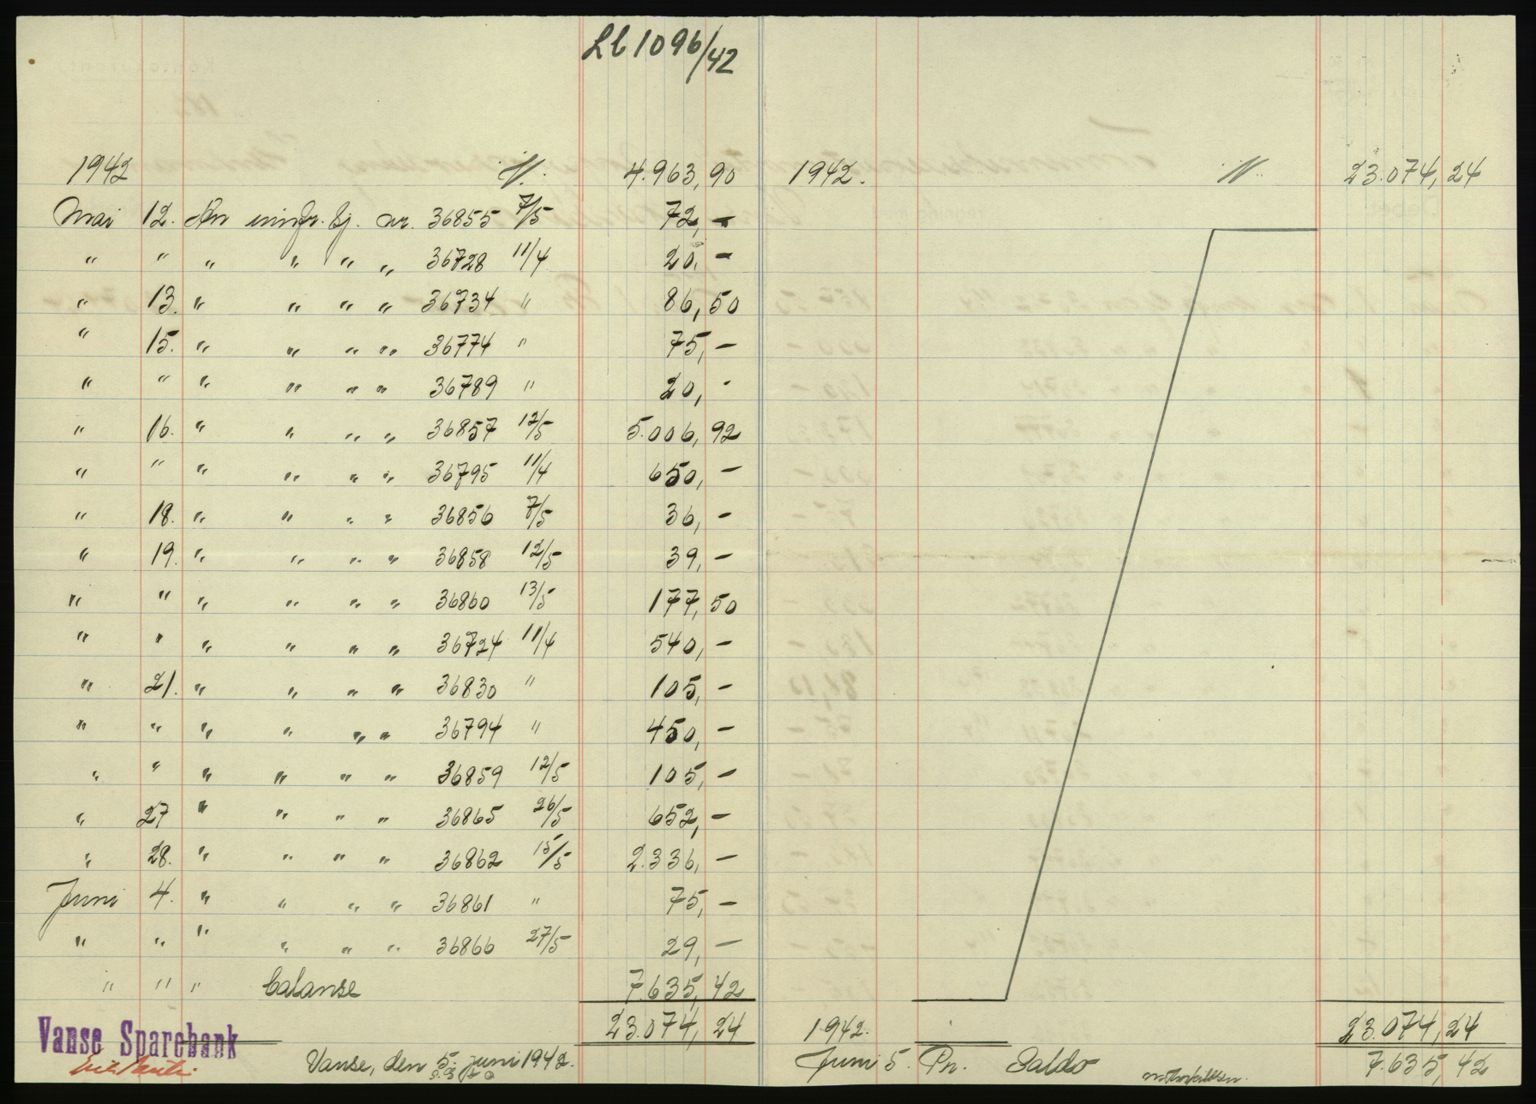 Lb 1096/42
1942 4.963,90
Mai 12. An innfr. bj. nr. 36855 7/5 72,-
" " " " " " 36728 11/4 20,-
" 13. " " " " 36734 " 86,50
" 15. " " " " 36774 " 75,-
" " " " " " 36789 " 20,-
" 16. " " " " 36857 12/5 5.006,92
" " " " " " 36795 11/4 650,-
" 18. " " " " 36856 7/5 36,-
" 19. " " " " 36858 12/5 39,-
" " " " " " 36860 13/5 177,50
" " " " " " 36724 11/4 540,-
" 21. " " " " 36830 " 105,-
" " " " " " 36794 " 450,-
" " " " " " 36859 12/5 105,-
" 27 " " " " 36865 26/5 652,-
" 28. " " " " 36862 15/5 2.336,-
Juni 4. " " " " 36861 " 75,-
" " " " " " 36866 27/5 29,-
" " " balanse 7.635,42
23.074,24
Vanse Sparebank
Vanse, den 5. juni 1942.
1942. 23.074,24
1942. 23.074,24
Juni 5. Pr. Saldo 7.635,42